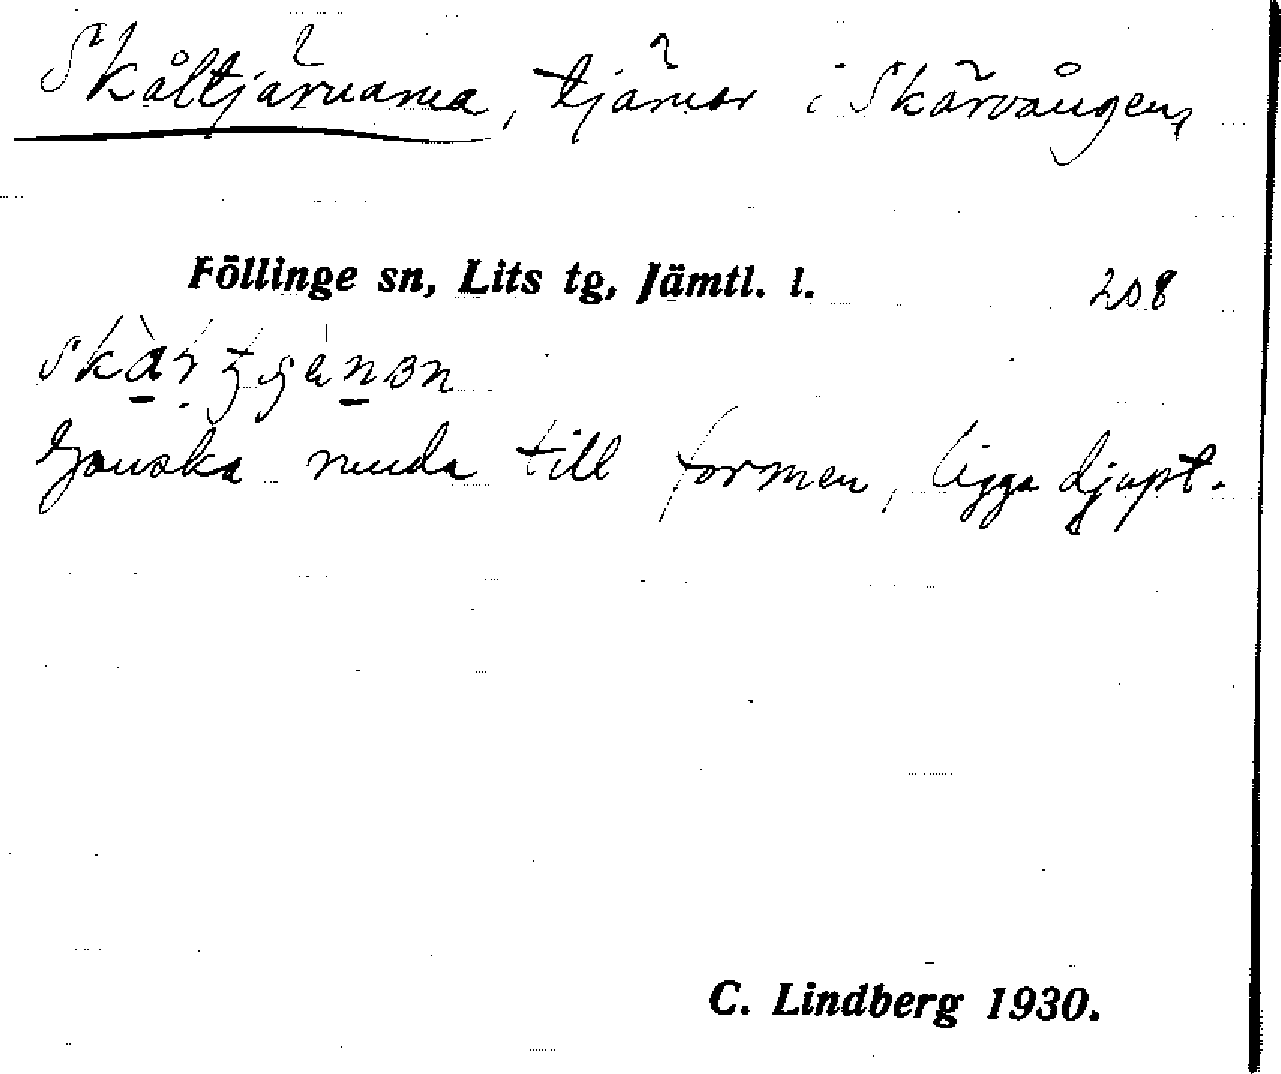 Skåltjärnarna, tjärnar i Skärvången,
Föllinge sn, Lits tg, Jämtl. l. 208
Ganska runda till formen, ligga djupt.
C. Lindberg 1930.